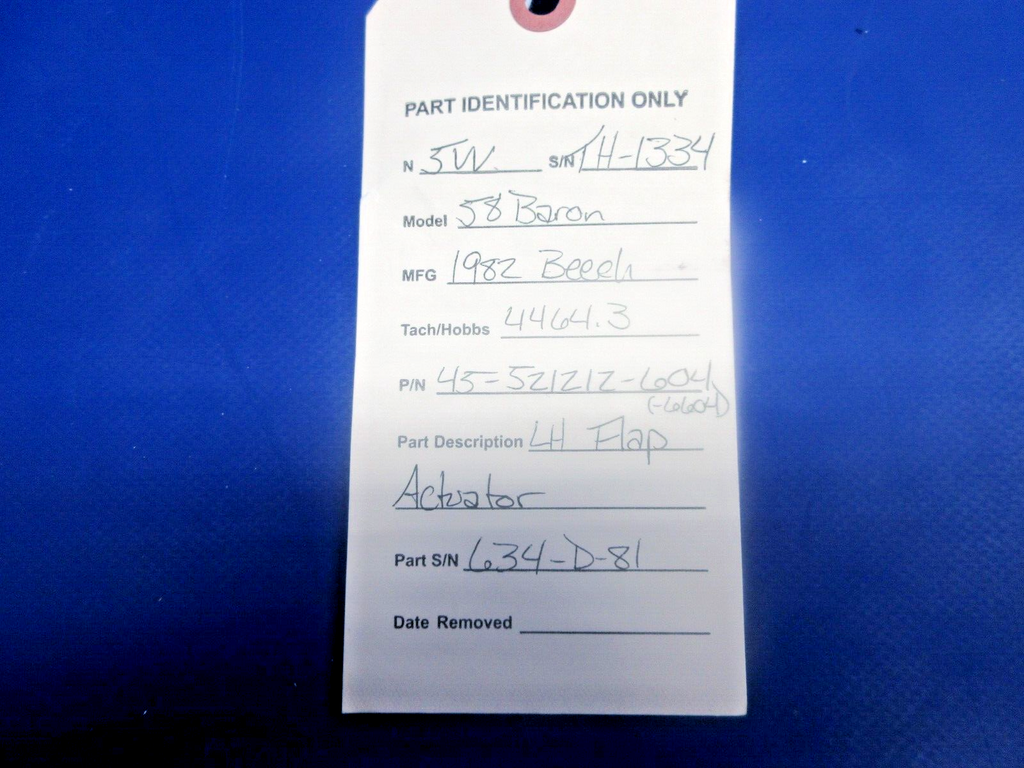 PART IDENTIFICATION ONLY
N 5W S/N TH-1334
Model 58 Baron
MFG 1982 Beech
Tach/Hobbs 4464.3
P/N 45-521212-604
(-6604)
Part Description LH Flap
Actuator
Part S/N 634-D-81
Date Removed